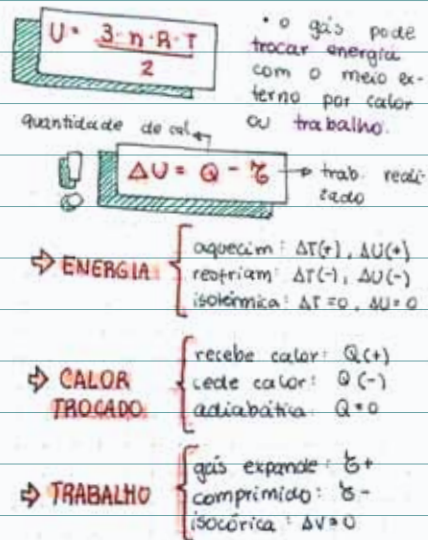 U = 3·n·R·T
2
• o gás pode
trocar energia
com o meio ex-
terno por calor
ou trabalho.
quantidade de cal
ΔU = Q - τ → trab. reali-
zado
⇨ ENERGIA
aquecim: ΔT(+), ΔU(+)
resfriam: ΔT(-), ΔU(-)
isotérmica: ΔT = 0, ΔU = 0
⇨ CALOR
TROCADO
recebe calor: Q(+)
cede calor: Q(-)
adiabática: Q = 0
⇨ TRABALHO
gás expande: τ+
comprimido: τ-
isocórica: ΔV = 0